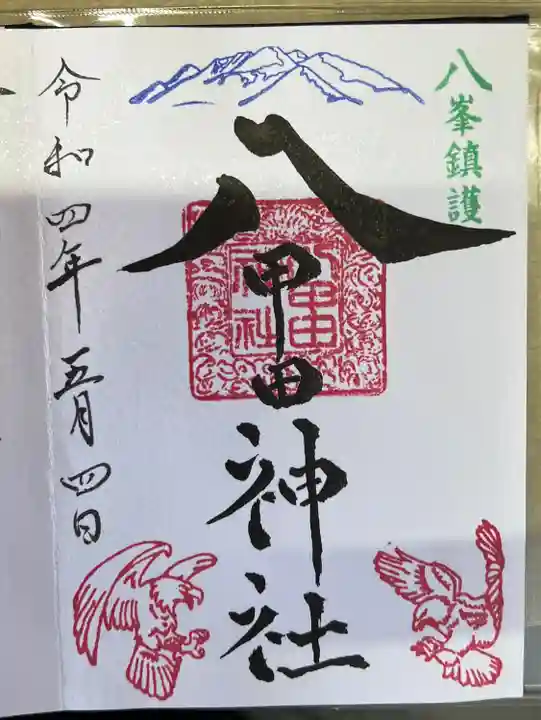 八峯鎮護
八甲田神社
八甲田
神社
令和四年五月四日